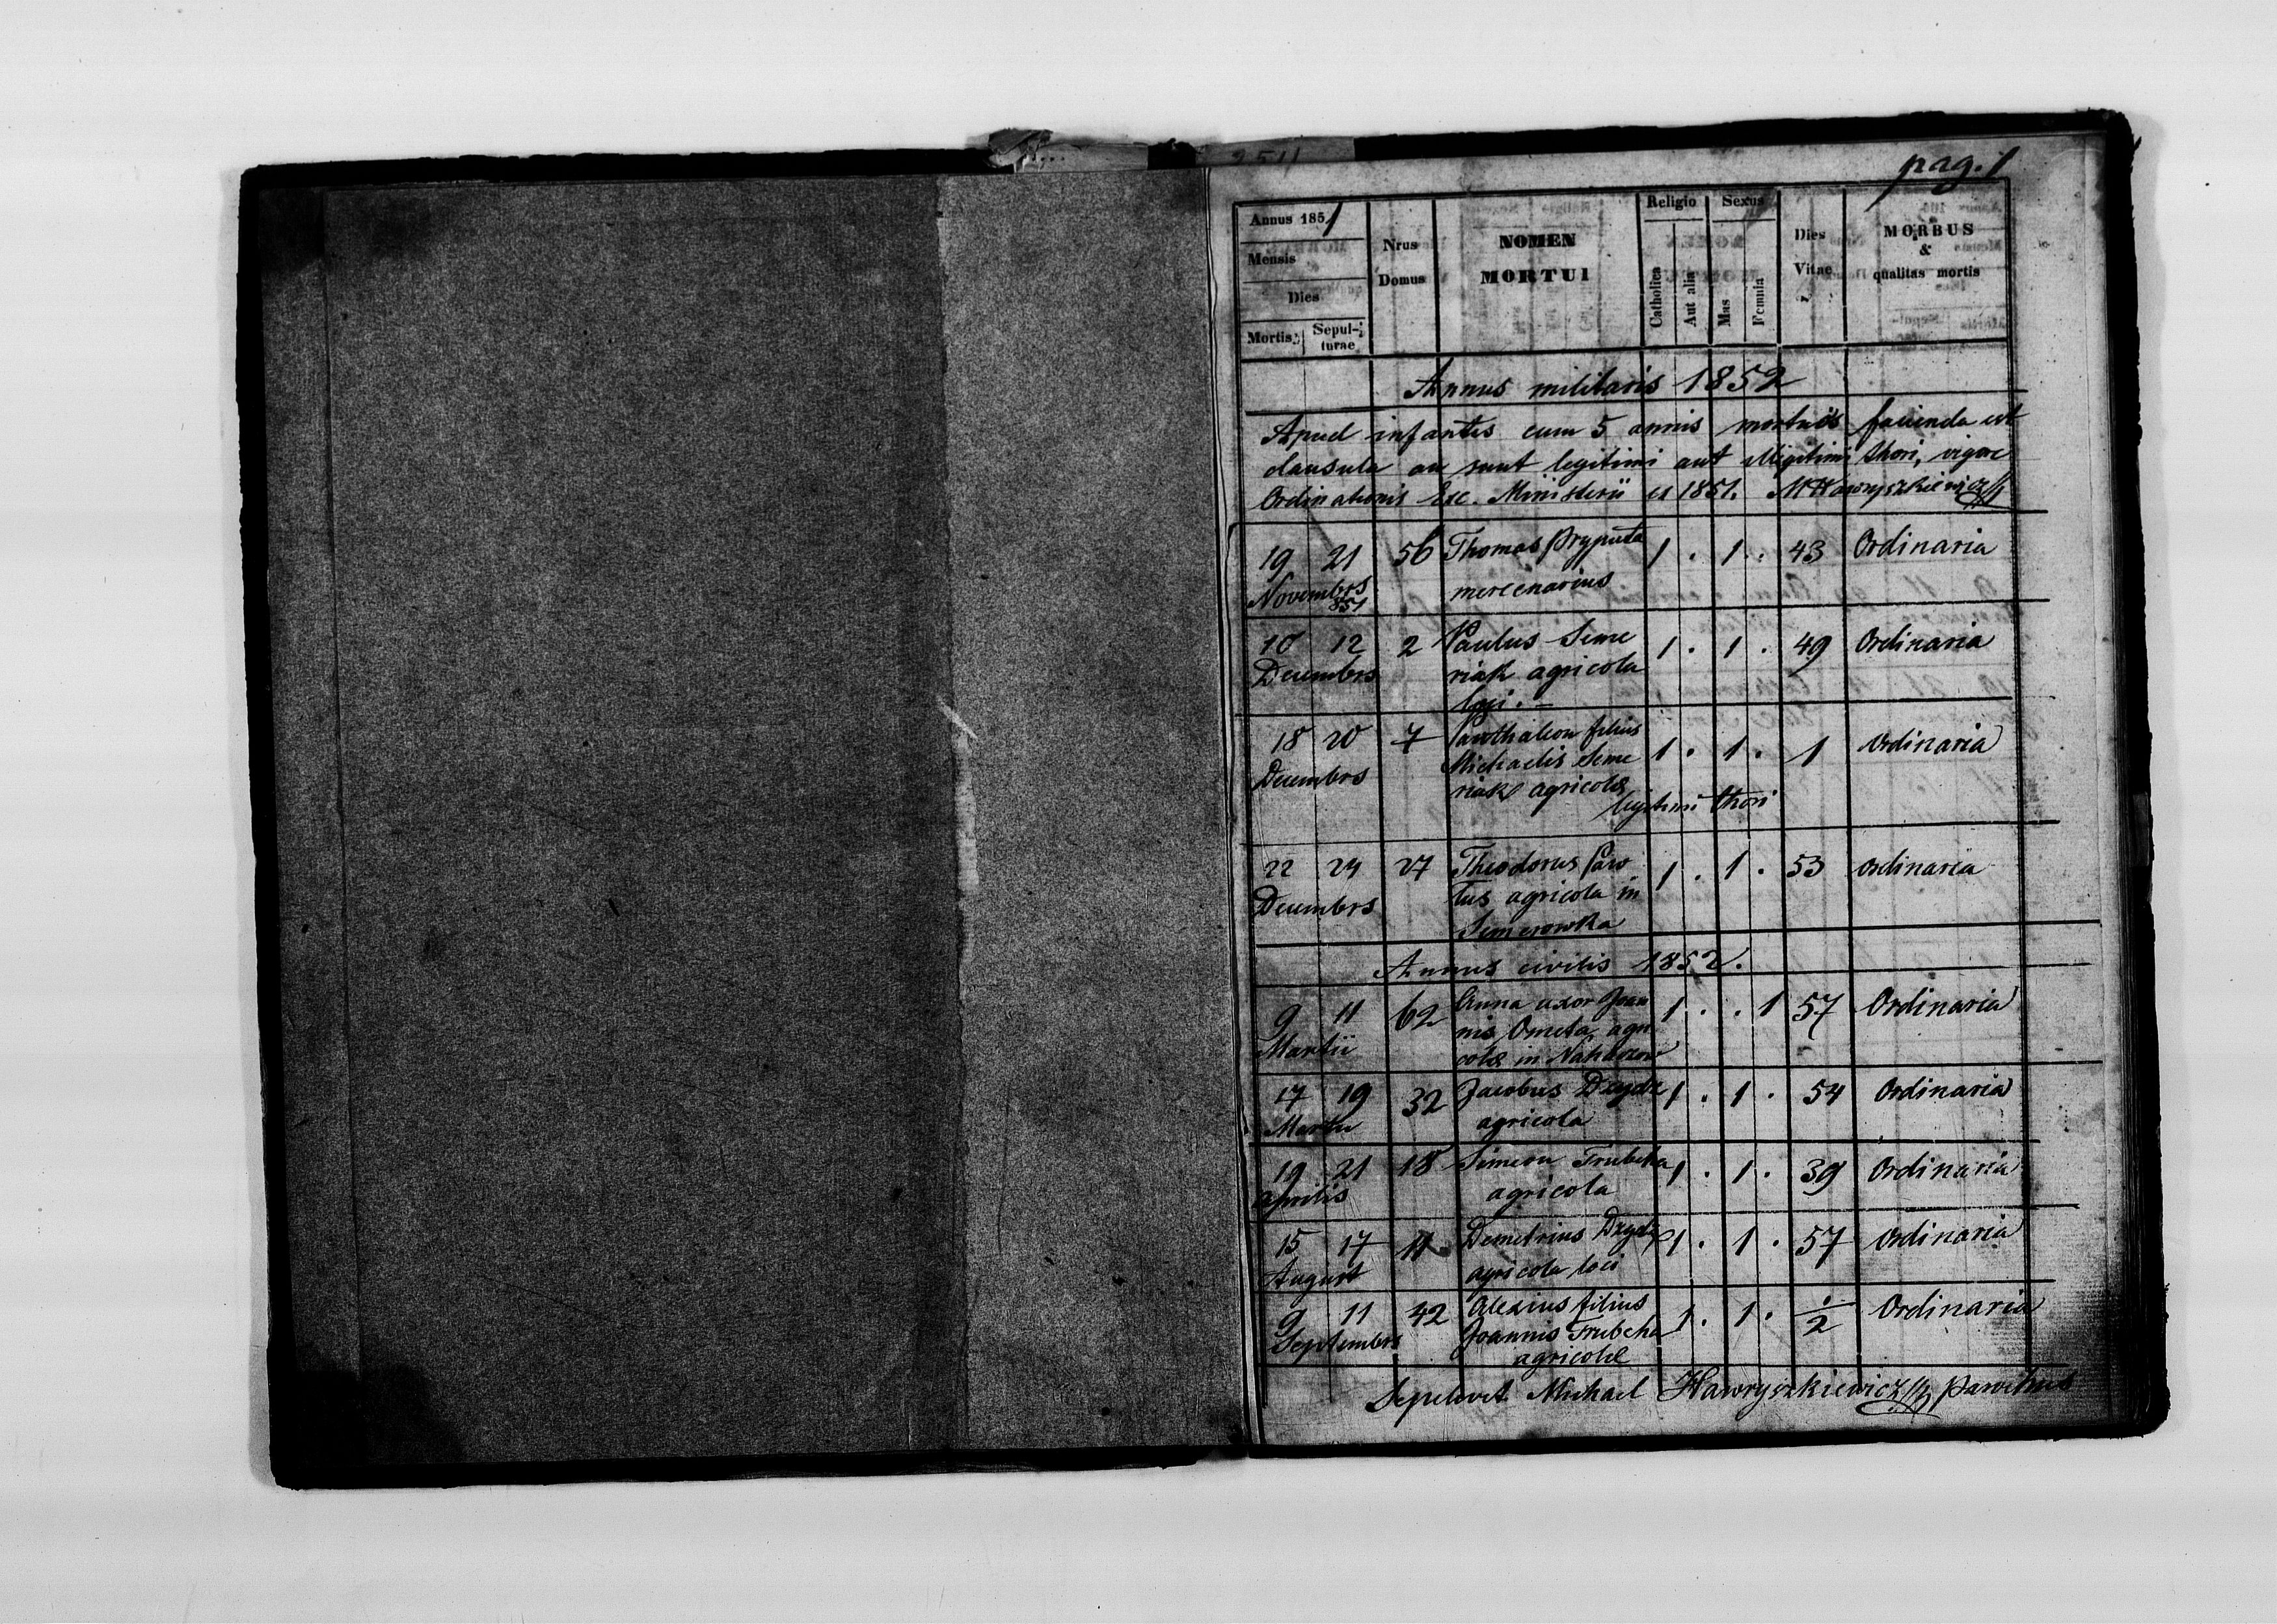 pag. 1
Annus 1851
Mensis
Dies
Mortis Sepul-
turae
Nrus
Domus
NOMEN
MORTUI
Religio
Catholica
Aut alia
Sexus
Mas
Femnia
Dies
Vitae
MORBUS
&
qualitas mortis
Annus militaris 1852
Apud infantes cum 5 annis mortuis facienda est
clausula an sunt legitimi aut illegitimi thori, vigore
Ordinationis Exc. Ministerii ex 1851. MHawryszkiewicz
19 21 56 Thomas Pryputa 1 . 1 . 43 Ordinaria
Novembrs mercenarius
851
10 12 2 Paulus Seme 1 . 1 . 49 Ordinaria
Decembrs riak agricola
loci . –
18 20 7 Panthaleon filius
Michaelis Seme 1 . 1 . 1 Ordinaria
Decembrs riak agricolæ
legitimi thori
22 24 27 Theodorus 1 . 1 . 53 Ordinaria
Decembrs tus agricola in
Semerowka
Annus civilis 1852.
9 11 62 Anna uxor Joan 1 . . 1 57 Ordinaria
Martii nis Ometa agri
colæ in Nahaczow
17 19 32 Jacobus Dzydz 1 . 1 . 54 Ordinaria
Martii agricola
19 21 18 Simeon Trubcha 1 . 1 . 39 Ordinaria
Aprilis agricola
15 17 11 Demetrius Dzydz 1 . 1 . 57 Ordinaria
August agricola loci
9 11 42 Alexius filius 1 . 1 . ./2 Ordinaria
Septembrs Joannis Trubcha
agricolæ
Sepelivit Michael Hawryszkiewicz parochus